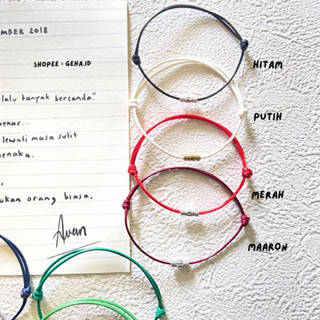 MBER 2018
SHOPEE : GEHA.ID
lalu banyak bercanda."
enar...
lewati masa sulit
enaka.
ukan orang biasa.
Avan
HITAM
PUTIH
MERAH
MAARON